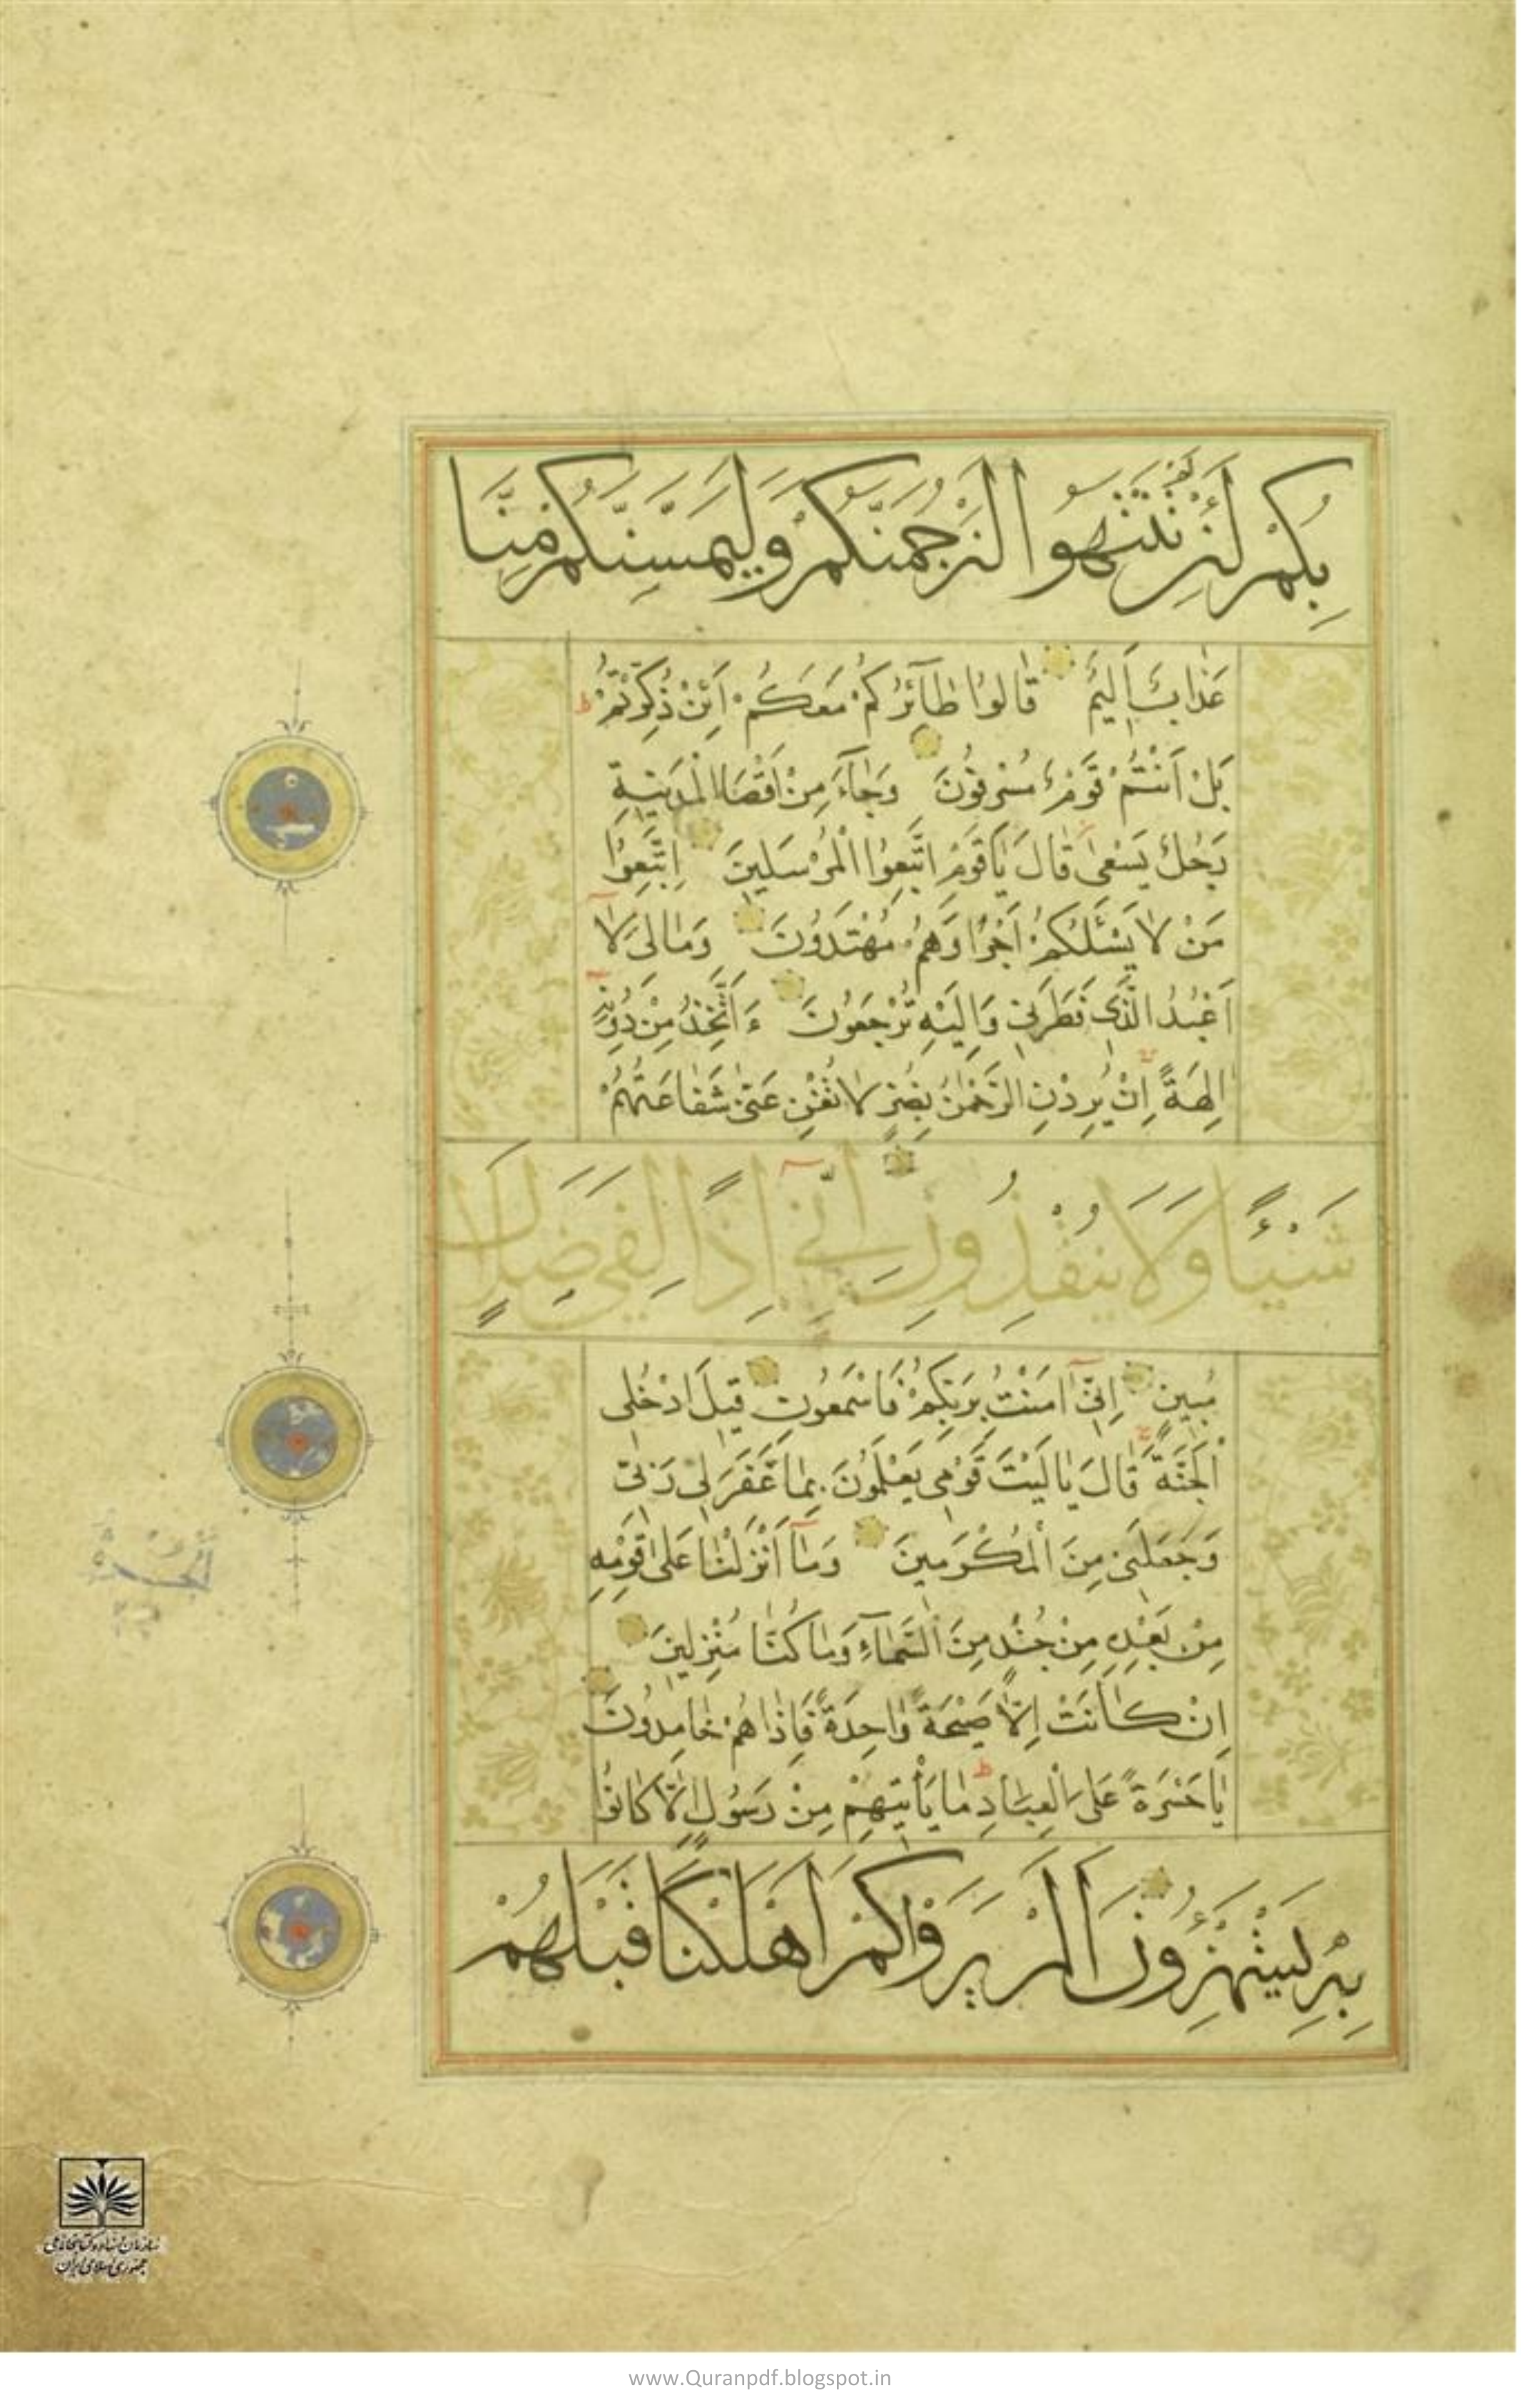 بِكُمْ لَئِنْ لَمْ تَنْتَهُوا لَنَرْجُمَنَّكُمْ وَلَيَمَسَّنَّكُمْ مِنَّا
عَذَابٌ أَلِيمٌ قَالُوا طَآئِرُكُمْ مَعَكُمْ اَئِنْ ذُكِّرْتُمْ ط
بَلْ اَنْتُمْ قَوْمٌ مُسْرِفُونَ وَجَآءَ مِنْ اَقْصَا الْمَدِينَةِ
رَجُلٌ يَسْعىٰ قَالَ يَا قَوْمِ اتَّبِعُوا الْمُرْسَلِينَ اِتَّبِعُوا
مَنْ لَا يَسْئَلُكُمْ اَجْرًا وَهُمْ مُهْتَدُونَ وَمَا لِىَ لَا
اَعْبُدُ الَّذِى فَطَرَنِى وَاِلَيْهِ تُرْجَعُونَ ءَاَتَّخِذُ مِنْ دُونِهِ
اٰلِهَةً اِنْ يُرِدْنِ الرَّحْمٰنُ بِضُرٍّ لَا تُغْنِ عَنِّى شَفَاعَتُهُمْ
شَيْئًا وَلَا يُنْقِذُونِ اِنِّىٓ اِذًا لَفِى ضَلَالٍ
مُبِينٍ اِنِّىٓ اٰمَنْتُ بِرَبِّكُمْ فَاسْمَعُونِ قِيلَ ادْخُلِ
الْجَنَّةَ قَالَ يَا لَيْتَ قَوْمِى يَعْلَمُونَ بِمَا غَفَرَ لِى رَبِّى
وَجَعَلَنِى مِنَ الْمُكْرَمِينَ وَمَآ اَنْزَلْنَا عَلىٰ قَوْمِهِ
مِنْ بَعْدِهِ مِنْ جُنْدٍ مِنَ السَّمَآءِ وَمَا كُنَّا مُنْزِلِينَ
اِنْ كَانَتْ اِلَّا صَيْحَةً وَاحِدَةً فَاِذَا هُمْ خَامِدُونَ
يَا حَسْرَةً عَلَى الْعِبَادِ ط مَا يَأْتِيهِمْ مِنْ رَسُولٍ اِلَّا كَانُوا
بِهِ يَسْتَهْزِؤُنَ اَلَمْ يَرَوْا كَمْ اَهْلَكْنَا قَبْلَهُمْ
سازمان اسناد و کتابخانه ملی
جمهوری اسلامی ایران
www.Quranpdf.blogspot.in